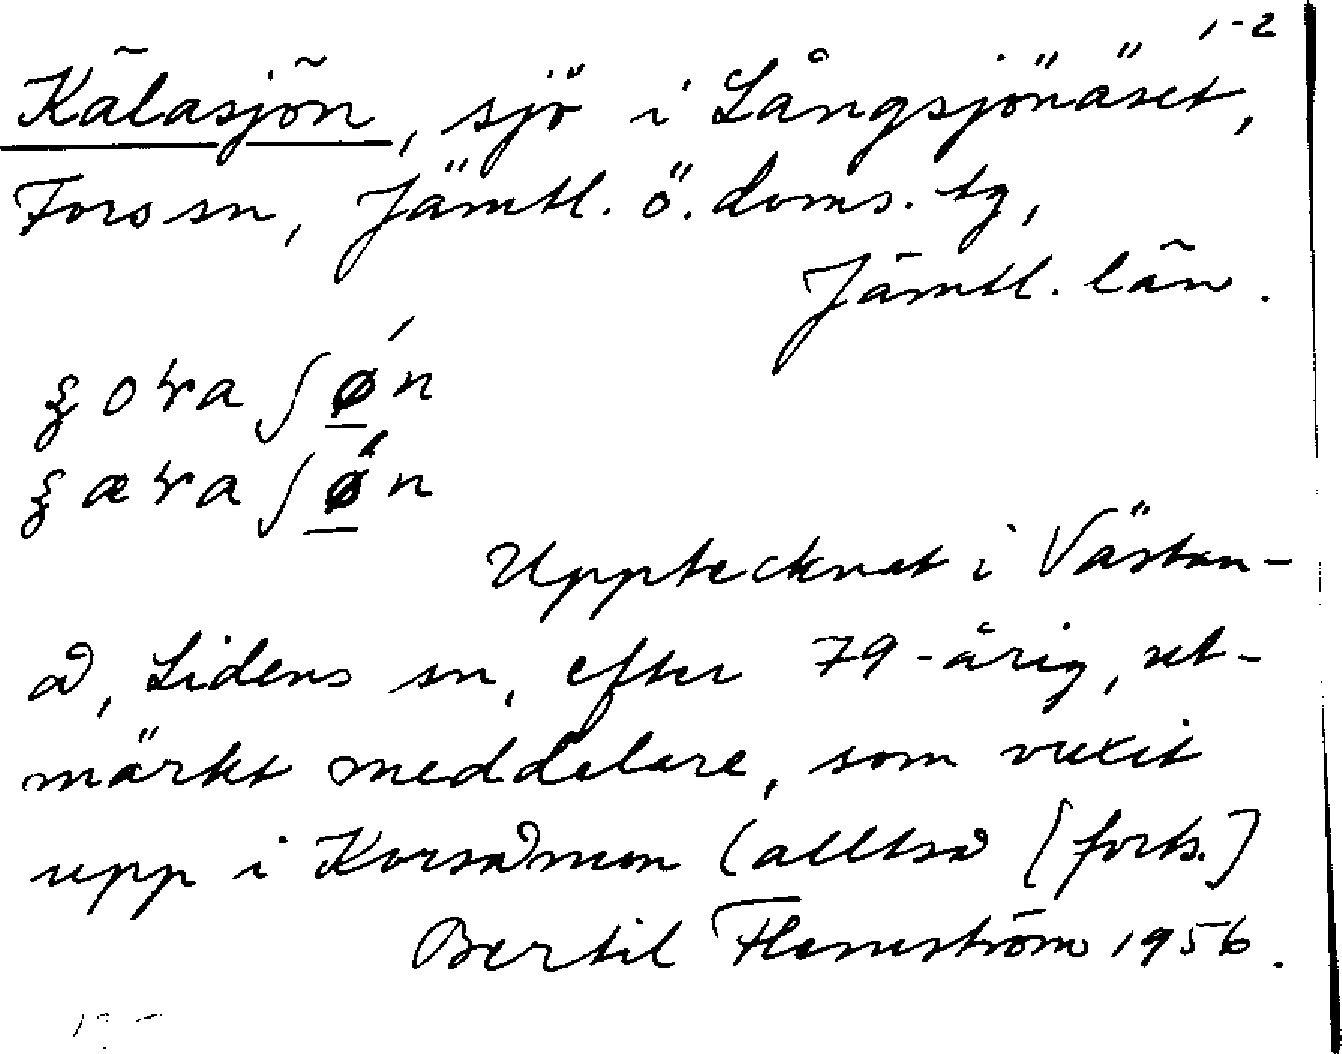 1-2
Kälasjön, sjö i Långsjönäset,
Fors sn, Jämtl. ö. doms. tg,
Jämtl. län.
Upptecknat i Västan-
å, Lidens sn, efter 79-årig, ut-
märkt meddelare, som vuxit
upp i Korsåmon (alltså [forts.]
Bertil Flemström 1956.